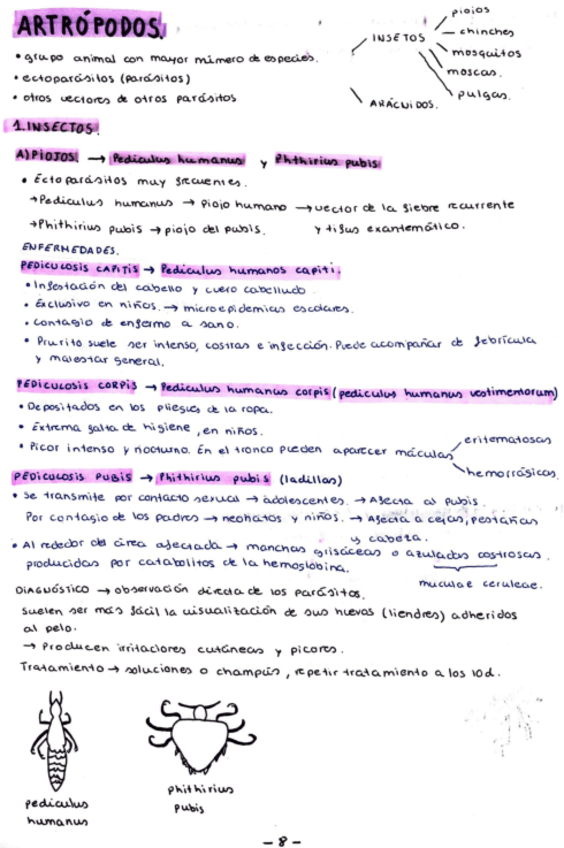 ARTRÓPODOS.
• grupo animal con mayor número de especies.
• ectoparásitos (parásitos)
• otros vectores de otros parásitos
INSETOS
piojos
chinches
mosquitos
moscas.
pulgas.
ARÁCNIDOS.
1. INSECTOS.
A) PIOJOS. → Pediculus humanus y Phthirius pubis
• Ectoparásitos muy frecuentes.
→ Pediculus humanus → Piojo humano → vector de la fiebre recurrente
y tifus exantemático.
→ Phithirius pubis → piojo del pubis.
ENFERMEDADES.
PEDICULOSIS CAPITIS → Pediculus humanos capiti.
• Infestación del cabello y cuero cabelludo.
• Exclusivo en niños. → microepidemias escolares.
• Contagio de enfermo a sano.
• Prurito suele ser intenso, costras e infección. Puede acompañar de febrícula
y malestar general.
PEDICULOSIS CORPIS → Pediculus humanus corpis (pediculus humanus vestimentorum)
• Depositados en los pliegues de la ropa.
• Extrema falta de higiene, en niños.
• Picor intenso y nocturno. En el tronco pueden aparecer máculas
eritematosas
hemorrágicas.
PEDICULOSIS PUBIS → Phithirius pubis (ladillas)
• Se transmite por contacto sexual → adolescentes. → Afecta al pubis.
Por contagio de los padres → neonatos y niños. → Afecta a cejas, pestañas
y cabeza.
• Al rededor del área afectada → manchas grisáceas o azuladas costrosas.
producidas por catabolitos de la hemoglobina.
maculae ceruleae.
DIAGNÓSTICO → observación directa de los parásitos.
Suelen ser más fácil la visualización de sus huevos (liendres) adheridos
al pelo.
→ Producen irritaciones cutáneas y picores.
Tratamiento → soluciones o champús, repetir tratamiento a los 10d.
pediculus
humanus
phithirius
pubis
- 8 -